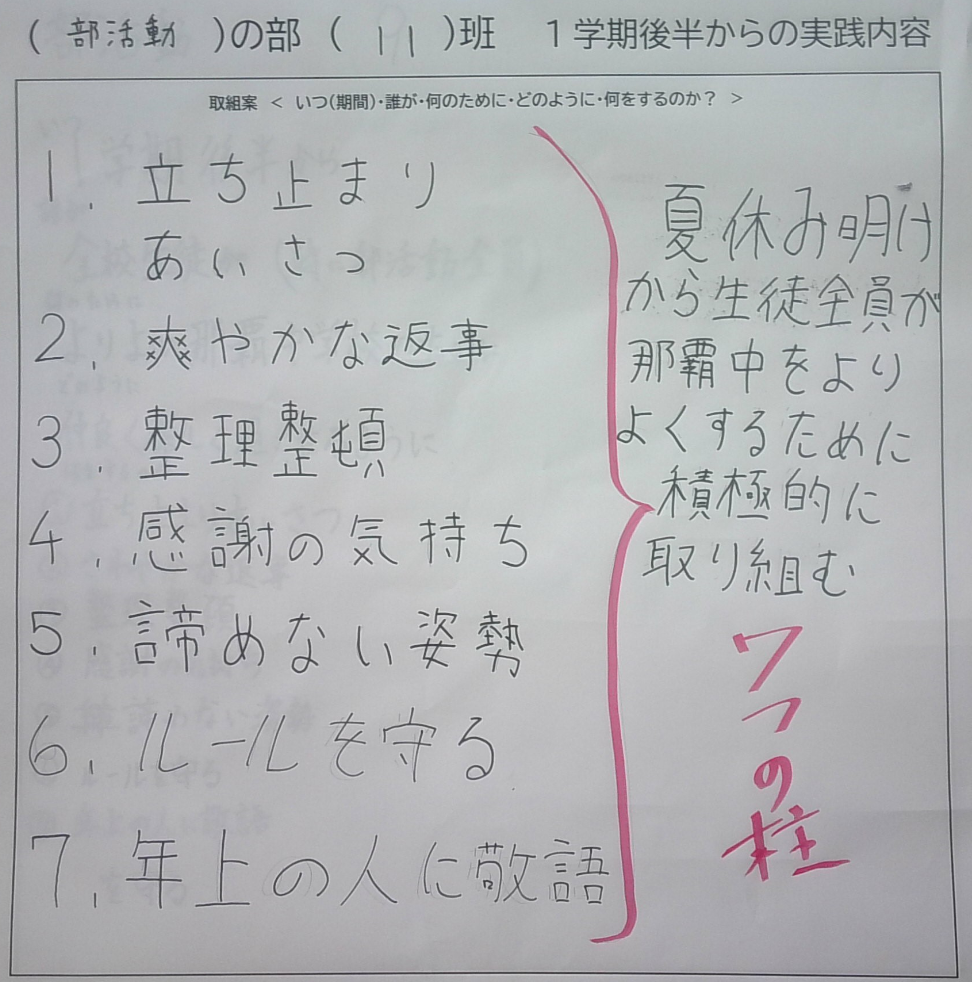 ( 部活動 )の部 ( 11 )班 1学期後半からの実践内容
取組案 < いつ(期間)・誰が・何のために・どのように・何をするのか? >
1. 立ち止まり
あいさつ
2. 爽やかな返事
3 整理整頓
4. 感謝の気持ち
5. 諦めない姿勢
6. ルールを守る
7. 年上の人に敬語
夏休み明け
から生徒全員が
那覇中をより
よくするために
積極的に
取り組む
7つの柱